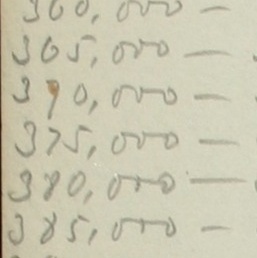 360,000 —
365,000 —
390,000 —
375,000 —
380,000 —
385,000 —